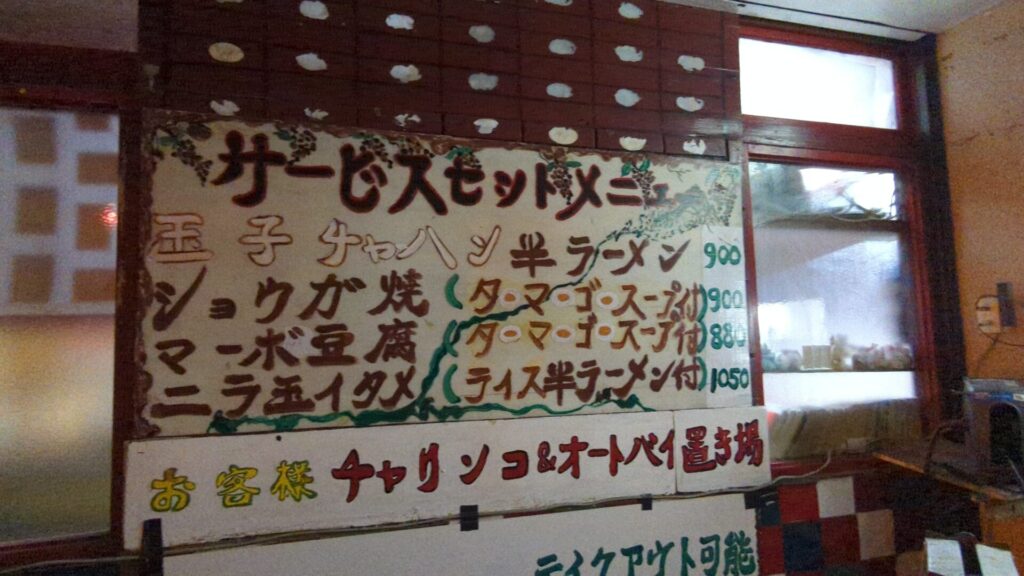 サービスセットメニュー
玉子チャハン 半ラーメン 900
ショウガ焼 (タマゴスープ付) 900
マーボ豆腐 (タマゴスープ付) 880
ニラ玉イタメ (ライス半ラーメン付) 1050
お客様 チャリンコ&オートバイ置き場
テイクアウト可能